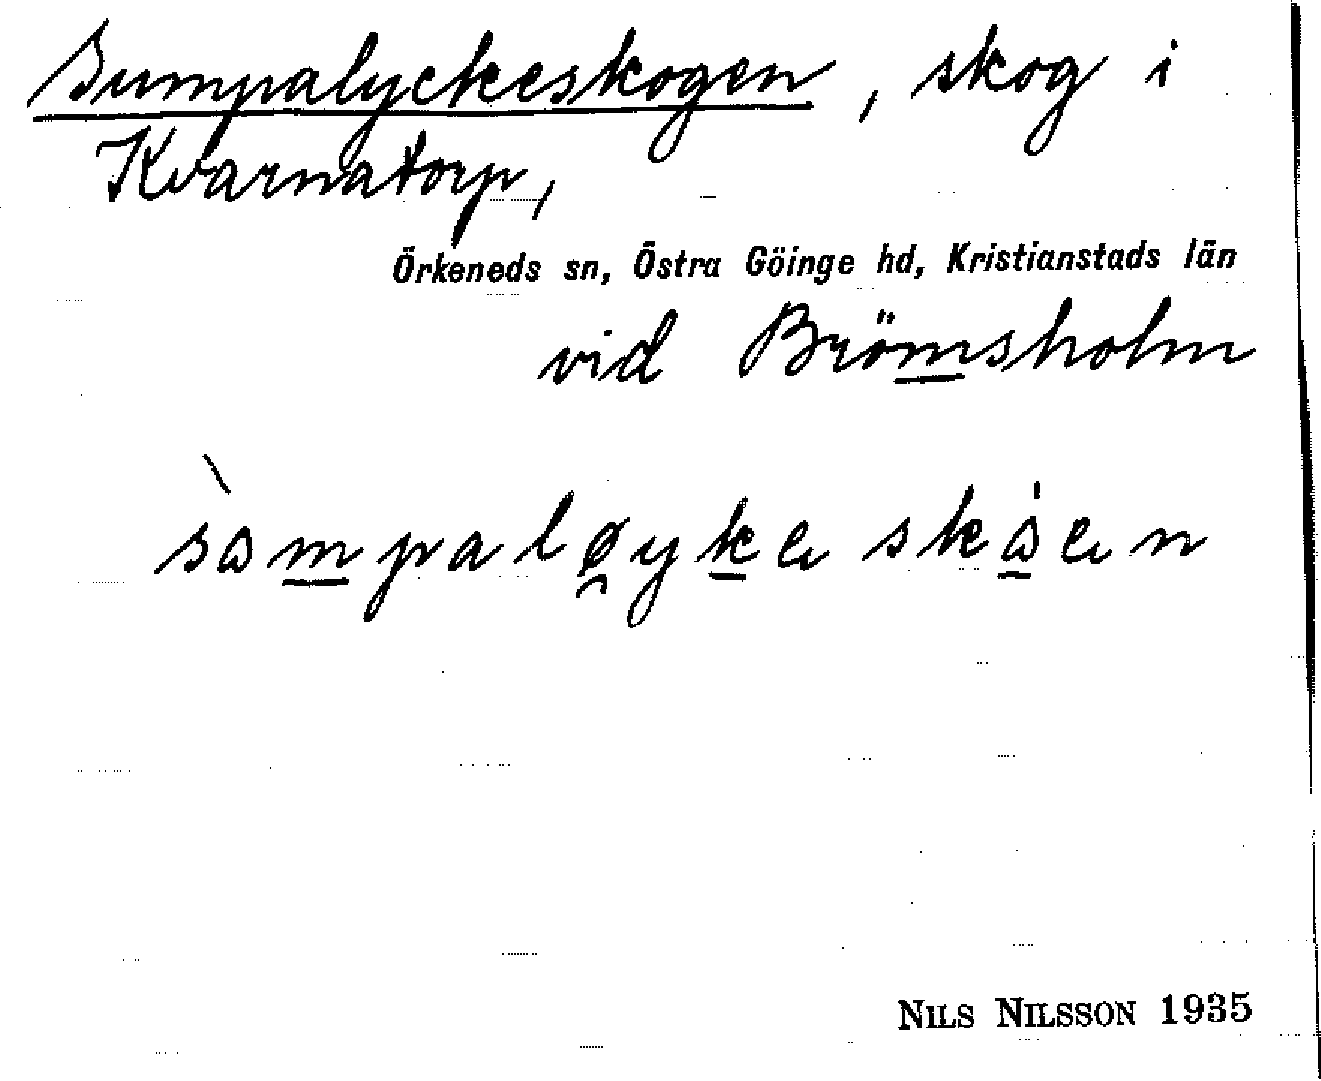 Sumpalyckeskogen, skog i
Kvarnatorp,
Örkeneds sn, Östra Göinge hd, Kristianstads län
vid Brömsholm
NILS NILSSON 1935